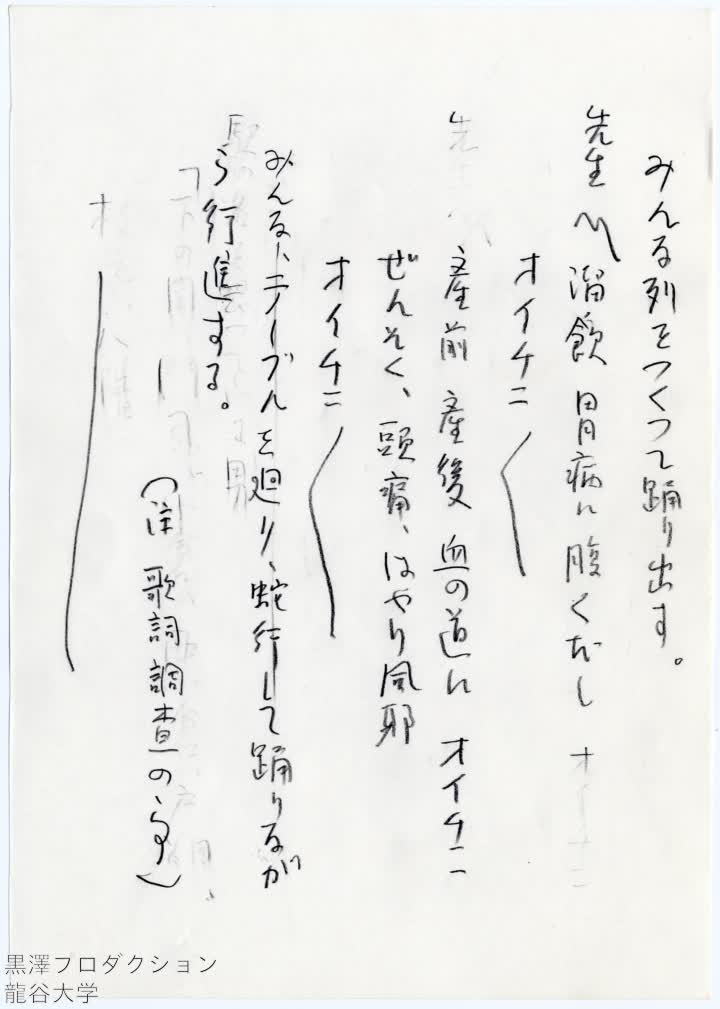 みんな列をつくって踊り出す。
先生〽溜飲 胃病に腹くだし オイチニ
オイチニ
産前 産後 血の道に オイチニ
ぜんそく、頭痛、はやり風邪
オイチニ
みんな、テーブルを廻り、蛇行して踊りなが
ら行進する。
(註 歌詞調査の事)
黒澤プロダクション
龍谷大学